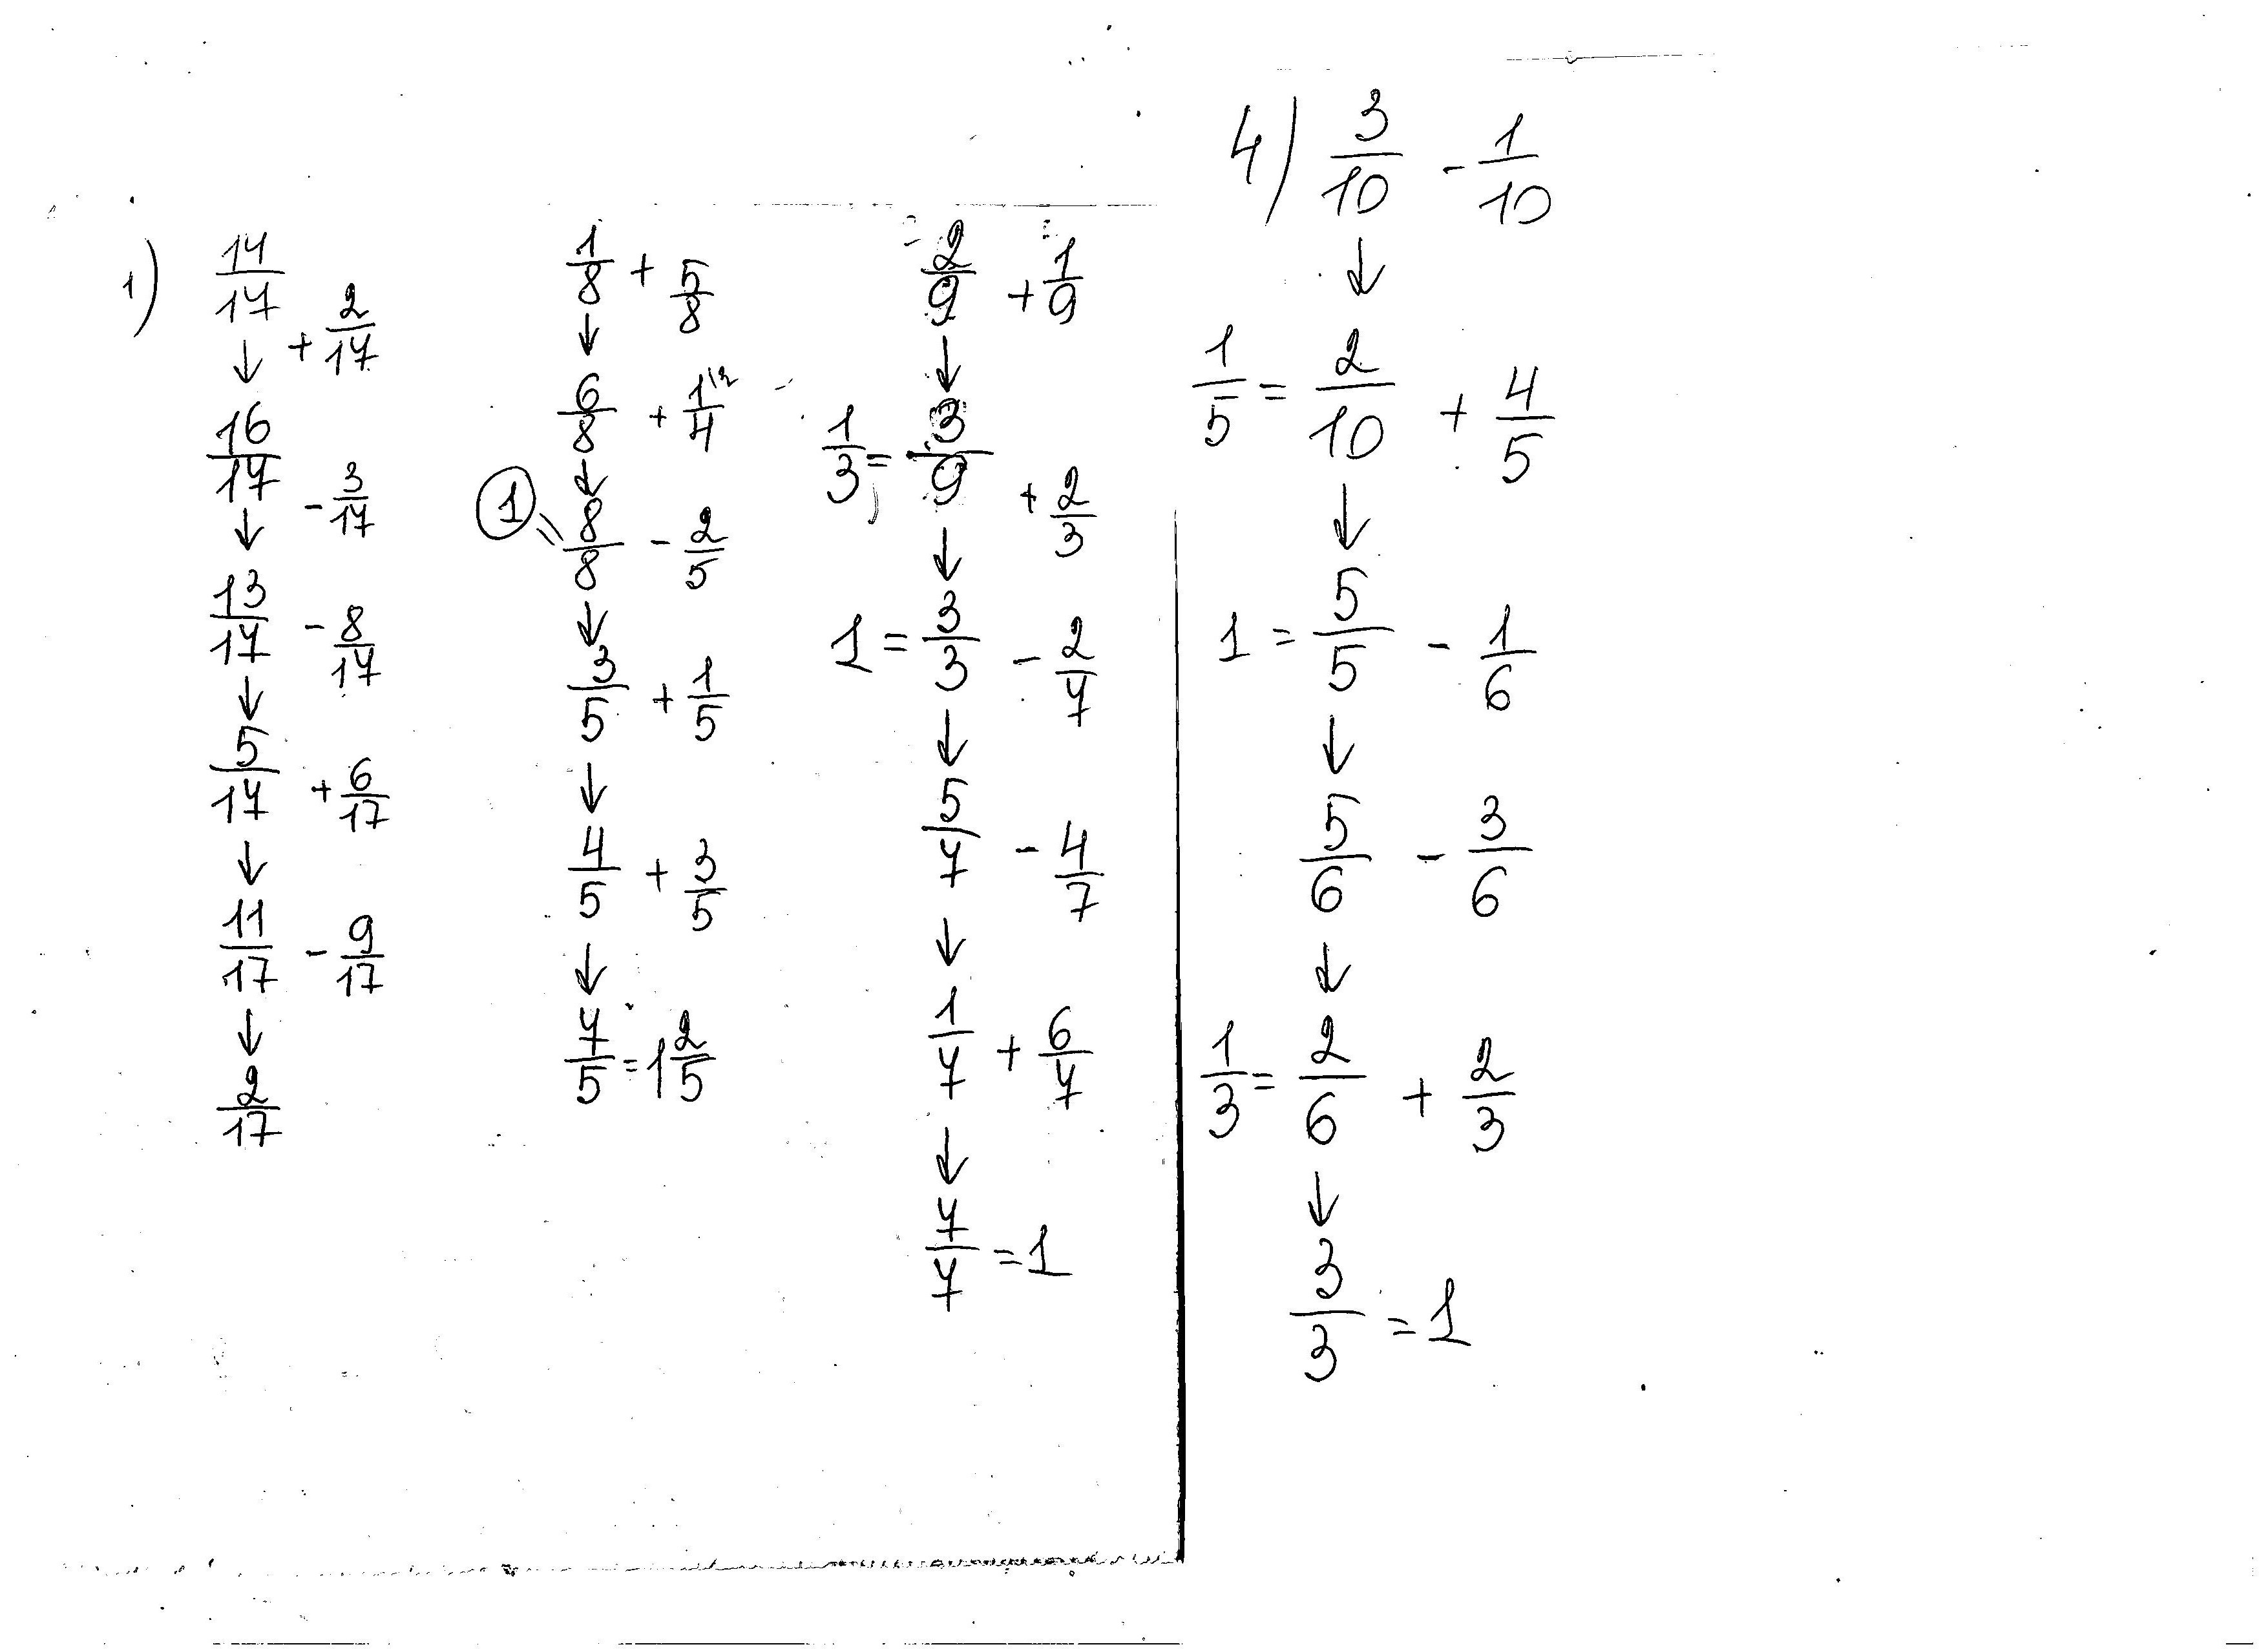 1) 14/17 + 2/17
↓
16/17 - 3/17
↓
13/17 - 8/17
↓
5/17 + 6/17
↓
11/17 - 9/17
↓
2/17
1/8 + 5/8
↓
6/8 + 1/4 \2
↓
1 = 8/8 - 2/5
↓
3/5 + 1/5
↓
4/5 + 3/5
↓
7/5 = 1 2/5
2/9 + 1/9
↓
1/3 = 3/9 + 2/3
↓
1 = 3/3 - 2/7
↓
5/7 - 4/7
↓
1/7 + 6/7
↓
7/7 = 1
4) 3/10 - 1/10
↓
1/5 = 2/10 + 4/5
↓
1 = 5/5 - 1/6
↓
5/6 - 3/6
↓
1/3 = 2/6 + 2/3
↓
3/3 = 1